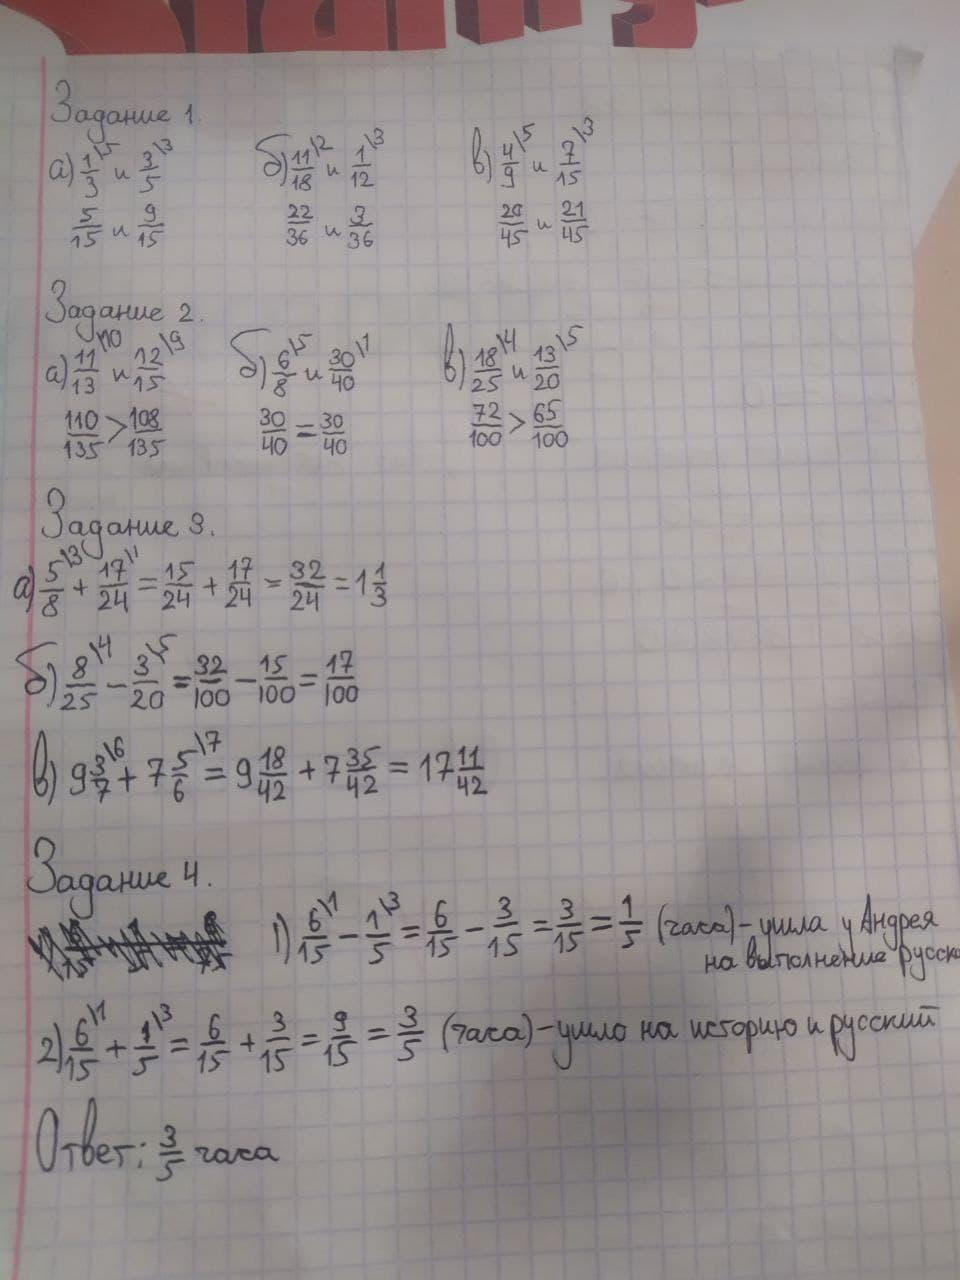 Задание 1.
а) 1/3 \5 и 3/5 \3 б) 11/18 \2 и 1/12 \3 в) 4/9 \5 и 7/15 \3
5/15 и 9/15 22/36 и 3/36 20/45 и 21/45
Задание 2.
а) 11/13 \10 и 12/15 \9 б) 6/8 \5 и 30/40 \1 в) 18/25 \4 и 13/20 \5
110/135 > 108/135 30/40 = 30/40 72/100 > 65/100
Задание 3.
а) 5/8 \3 + 17/24 \1 = 15/24 + 17/24 = 32/24 = 1 1/3
б) 8/25 \4 - 3/20 \5 = 32/100 - 15/100 = 17/100
в) 9 3/7 \6 + 7 5/6 \7 = 9 18/42 + 7 35/42 = 17 11/42
Задание 4.
1) 6/15 \1 - 1/5 \3 = 6/15 - 3/15 = 3/15 = 1/5 (часа) - ушла у Андрея
на выполнение русско
2) 6/15 \1 + 1/5 \3 = 6/15 + 3/15 = 9/15 = 3/5 (часа) - ушло на историю и русский
Ответ: 3/5 часа